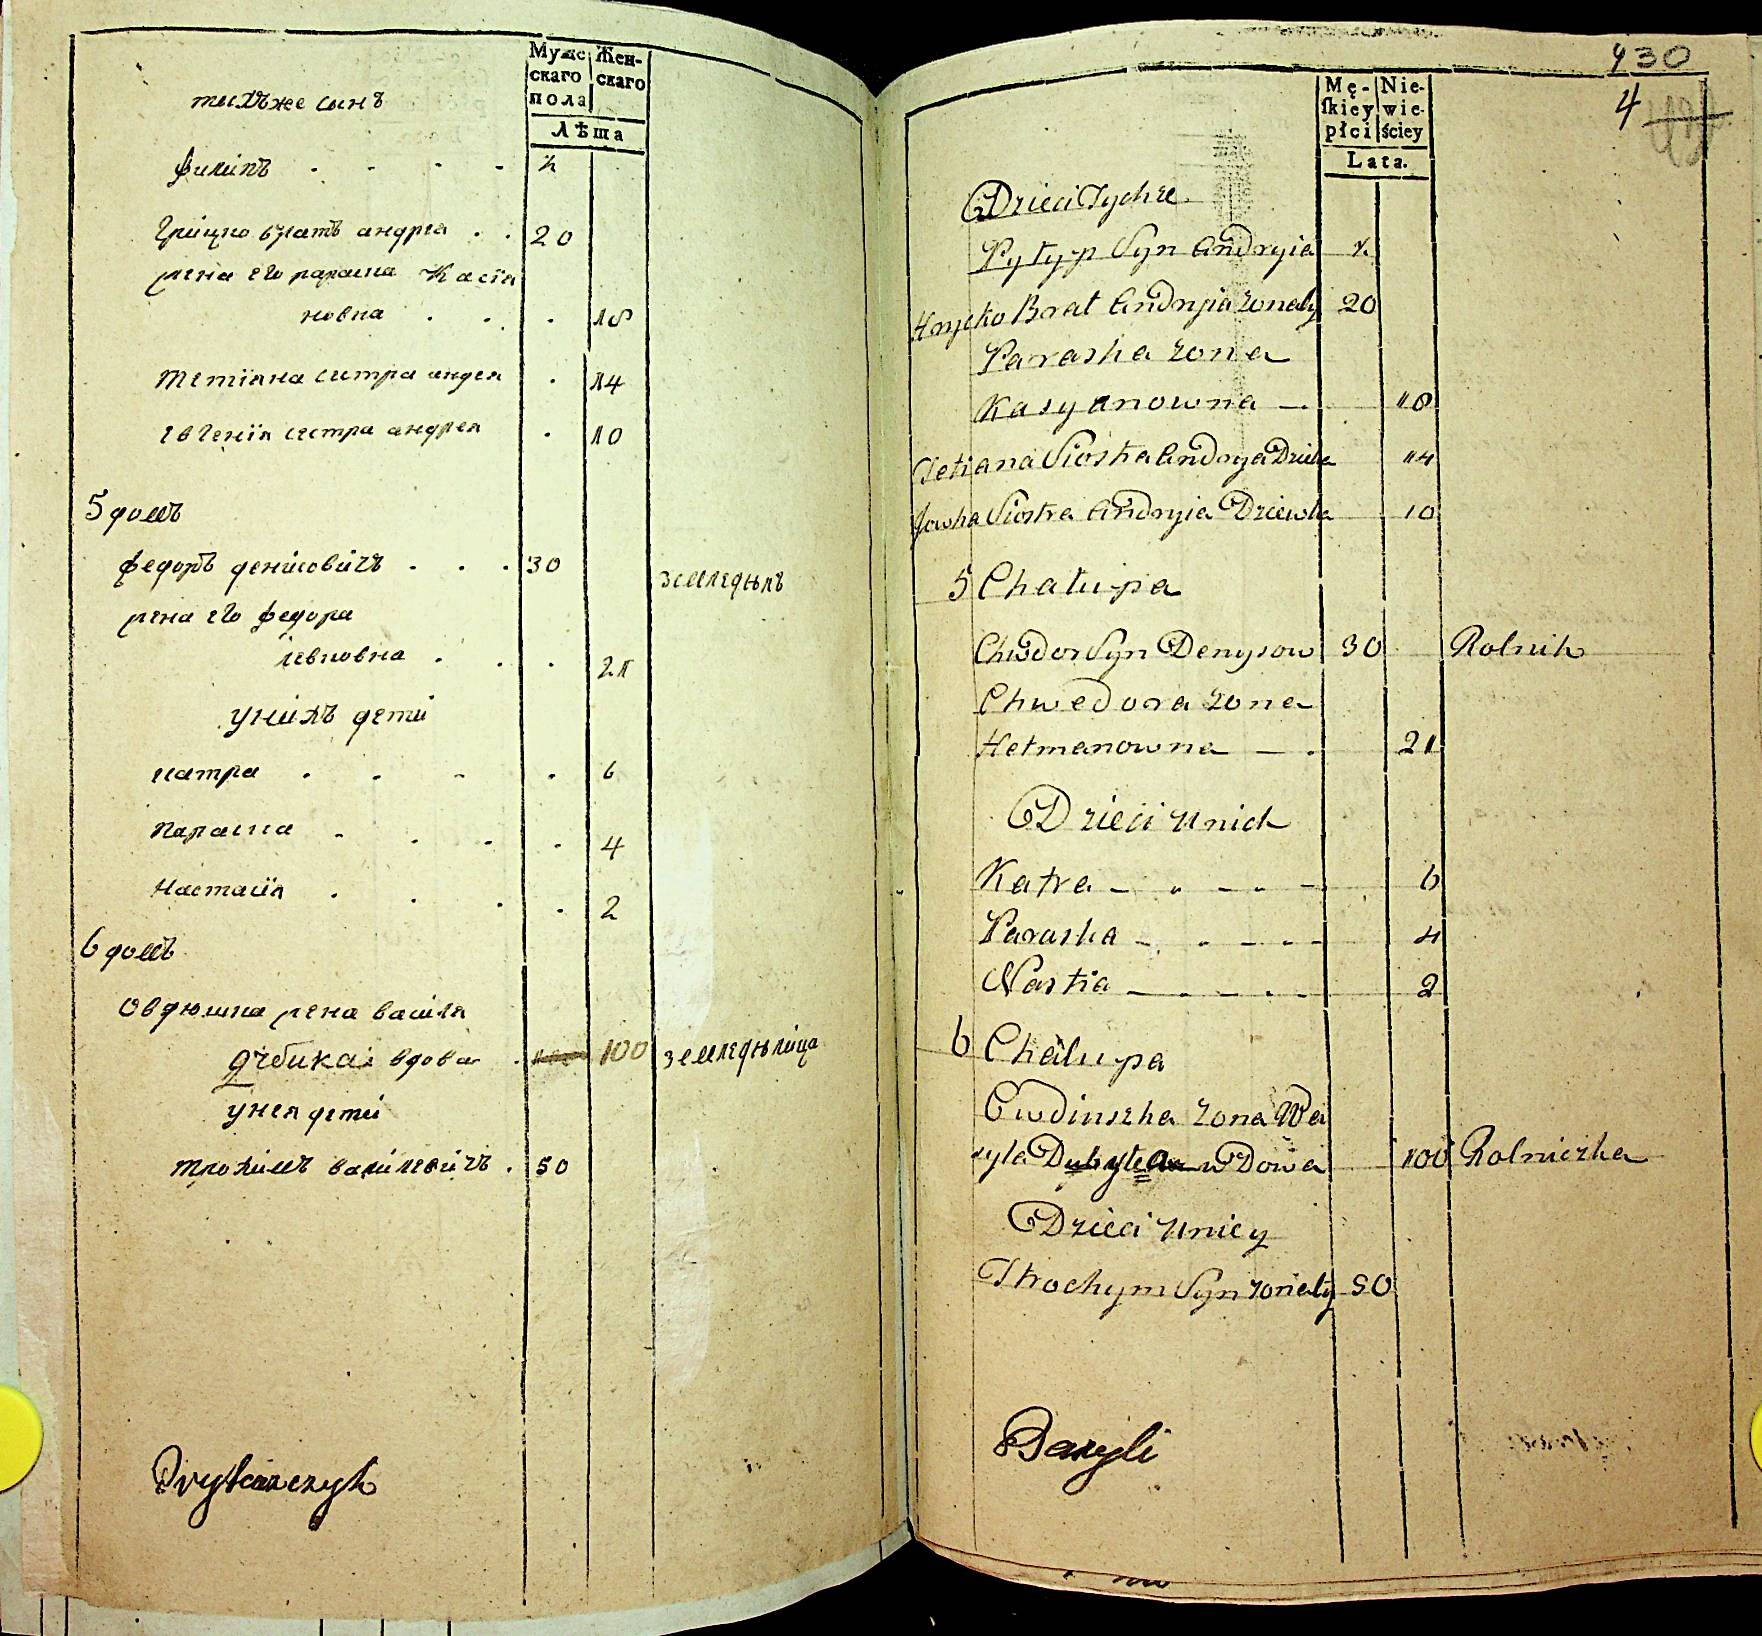 Муже
скаго
пола
Жен-
скаго
Лѣта
тыхъже сынъ
филипъ
Грицко братъ андрея 20
жена его параска Касія
новна 18
тетіяна сестра андрея 14
евгенія сестра андрея 10
5 домъ
федоръ денисовичъ 30 земледѣлъ
жена его федора
21
унихъ дети
катра 6
Параска 4
Настасія 2
6 домъ
Овдюшка жена василя
вдова 100 земледѣлица
унея дети
трохимъ василевичъ 50
430
4
Mę-
skiey
płci
Nie-
wie-
ściey
Lata.
Dzieci Tychże
Pylyp Syn Andryia
Hrycko Brat Andryia żonaty 20
Paraska żona
Kasyanowna 18
Tetiana Siostra Andryia Dziewka 14
Jewka Siostra Andryia Dziewka 10
5 Chałupa
Chwedor Syn Denysow 30 Rolnik
Chwedora żona
Hetmanowna 21
Dzieci unich
Katra 6
Paraska 4
Nastia 2
6 Chałupa
Owdiuszka żona Wa
syla wdowa 100 Rolniczka
Dzieci uniey
Trochym Syn żonaty 50